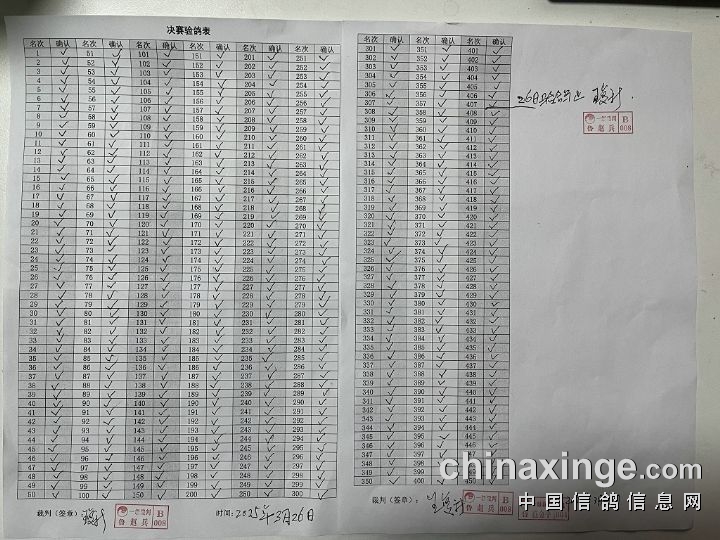 决赛验鸽表
名次 确认 名次 确认 名次 确认 名次 确认 名次 确认 名次 确认
1 51 101 151 201 251
2 52 102 152 202 252
3 53 103 153 203 253
4 54 104 154 204 254
5 55 105 155 205 255
6 56 106 156 206 256
7 57 107 157 207 257
8 58 108 158 208 258
9 59 109 159 209 259
10 60 110 160 210 260
11 61 111 161 211 261
12 62 112 162 212 262
13 63 113 163 213 263
14 64 114 164 214 264
15 65 115 165 215 265
16 66 116 166 216 266
17 67 117 167 217 267
18 68 118 168 218 268
19 69 119 169 219 269
20 70 120 170 220 270
21 71 121 171 221 271
22 72 122 172 222 272
23 73 123 173 223 273
24 74 124 174 224 274
25 75 125 175 225 275
26 76 126 176 226 276
27 77 127 177 227 277
28 78 128 178 228 278
29 79 129 179 229 279
30 80 130 180 230 280
31 81 131 181 231 281
32 82 132 182 232 282
33 83 133 183 233 283
34 84 134 184 234 284
35 85 135 185 235 285
36 86 136 186 236 286
37 87 137 187 237 287
38 88 138 188 238 288
39 89 139 189 239 289
40 90 140 190 240 290
41 91 141 191 241 291
42 92 142 192 242 292
43 93 143 193 243 293
44 94 144 194 244 294
45 95 145 195 245 295
46 96 146 196 246 296
47 97 147 197 247 297
48 98 148 198 248 298
49 99 149 199 249 299
50 100 150 200 250 300
裁判（签章）：
B
鲁 赵 兵 008
时间：2025年3月26日
名次 确认 名次 确认 名次 确认
301 351 401
302 352 402
303 353 403
304 354 404
305 355 405
306 356 406
307 357 407
308 358 408
309 359 409
310 360 410
311 361 411
312 362 412
313 363 413
314 364 414
315 365 415
316 366 416
317 367 417
318 368 418
319 369 419
320 370 420
321 371 421
322 372 422
323 373 423
324 374 424
325 375 425
326 376 426
327 377 427
328 378 428
329 379 429
330 380 430
331 381 431
332 382 432
333 383 433
334 384 434
335 385 435
336 386 436
337 387 437
338 388 438
339 389 439
340 390 440
341 391 441
342 392 442
343 393 443
344 394 444
345 395 445
346 396 446
347 397 447
348 398 448
349 399 449
350 400 450
26日验鸽止
B
鲁 赵 兵 008
裁判（签章）：
B
鲁 赵 兵 008
chinaxinge.com
中国信鸽信息网